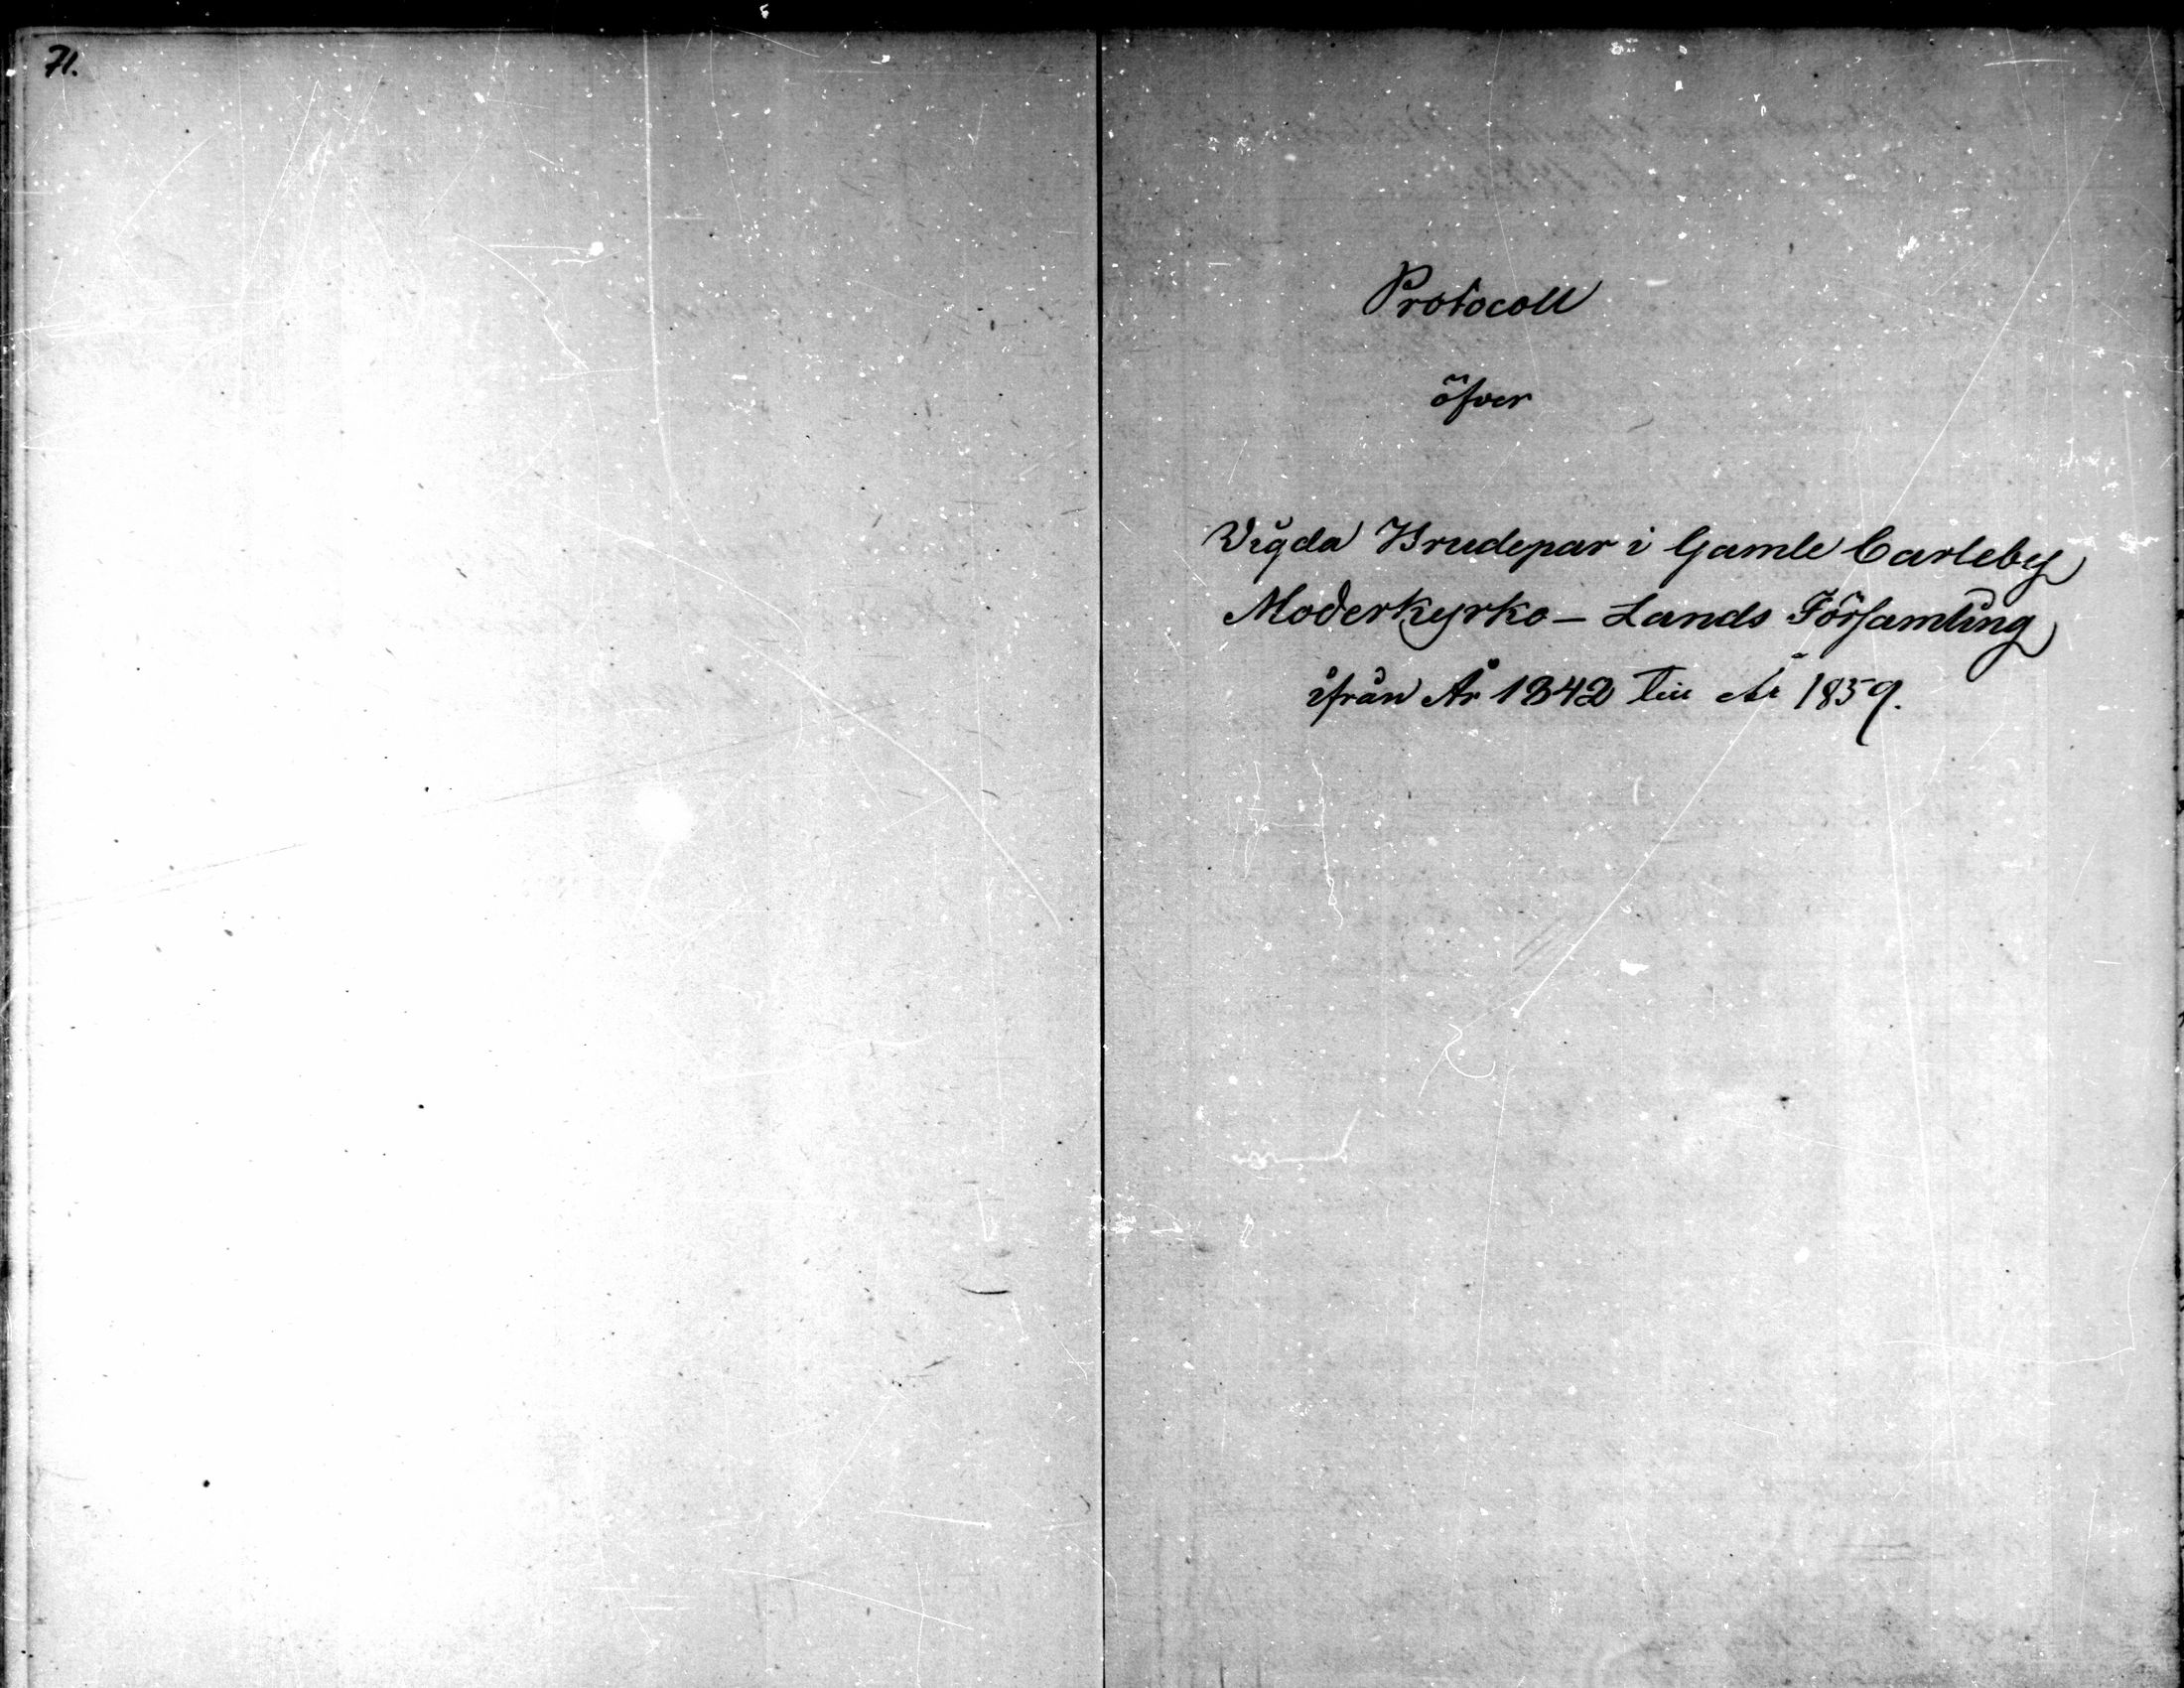 71.
Protocoll
öfver
Vigda Brudepar i Gamle Carleby
Moderkyrko - Lands Församling
ifrån År 1842 till År 1859.